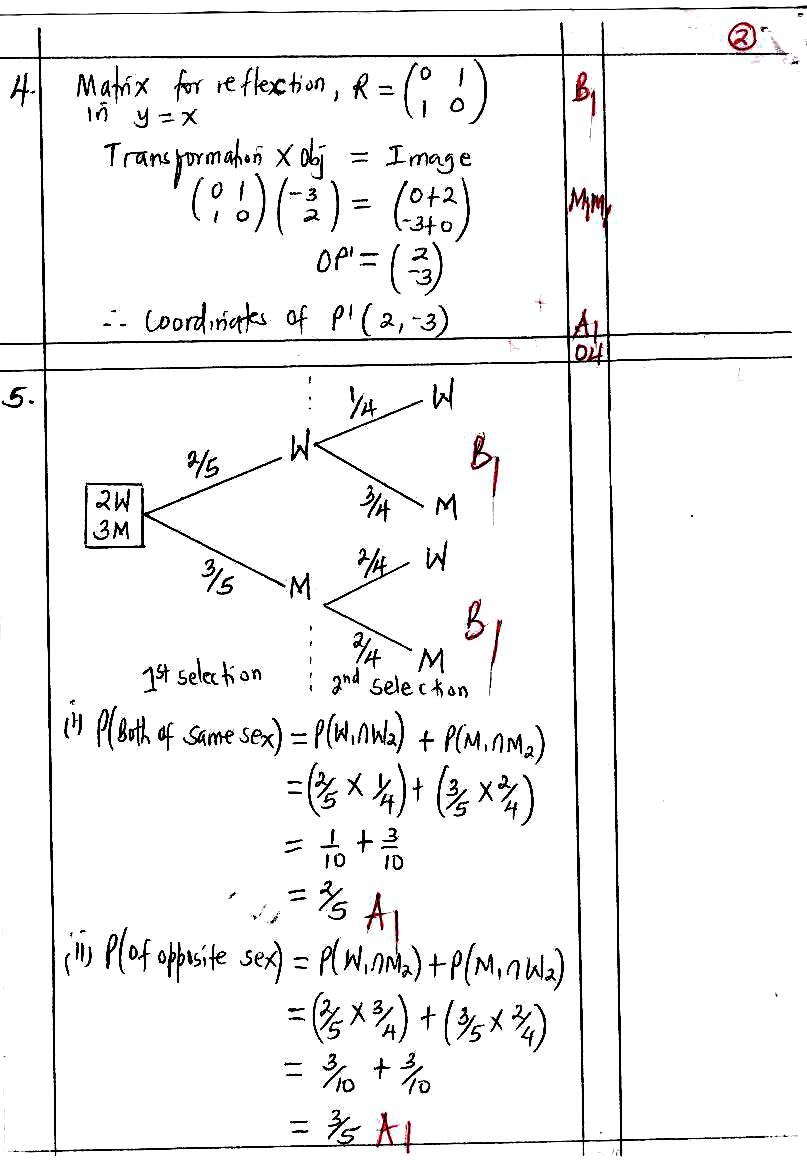 ②
4. Matrix for reflection, R = (0 1
in y = x 1 0) B1
Transformation X Obj = Image
(0 1 (-3 = (0+2
1 0) 2) -3+0) M1M1
OP' = (2
-3)
∴ Coordinates of P'(2,-3) A1
04
5.
1/4 W
2/5 W B1
2W 3/4 M
3M 2/4 W
3/5 M B1
2/4 M
1st selection 2nd selection
(i) P(Both of same sex) = P(W₁∩W₂) + P(M₁∩M₂)
= (2/5 X 1/4) + (3/5 X 2/4)
= 1/10 + 3/10
= 2/5 A1
(ii) P(of opposite sex) = P(W₁∩M₂) + P(M₁∩W₂)
= (2/5 X 3/4) + (3/5 X 2/4)
= 3/10 + 3/10
= 3/5 A1